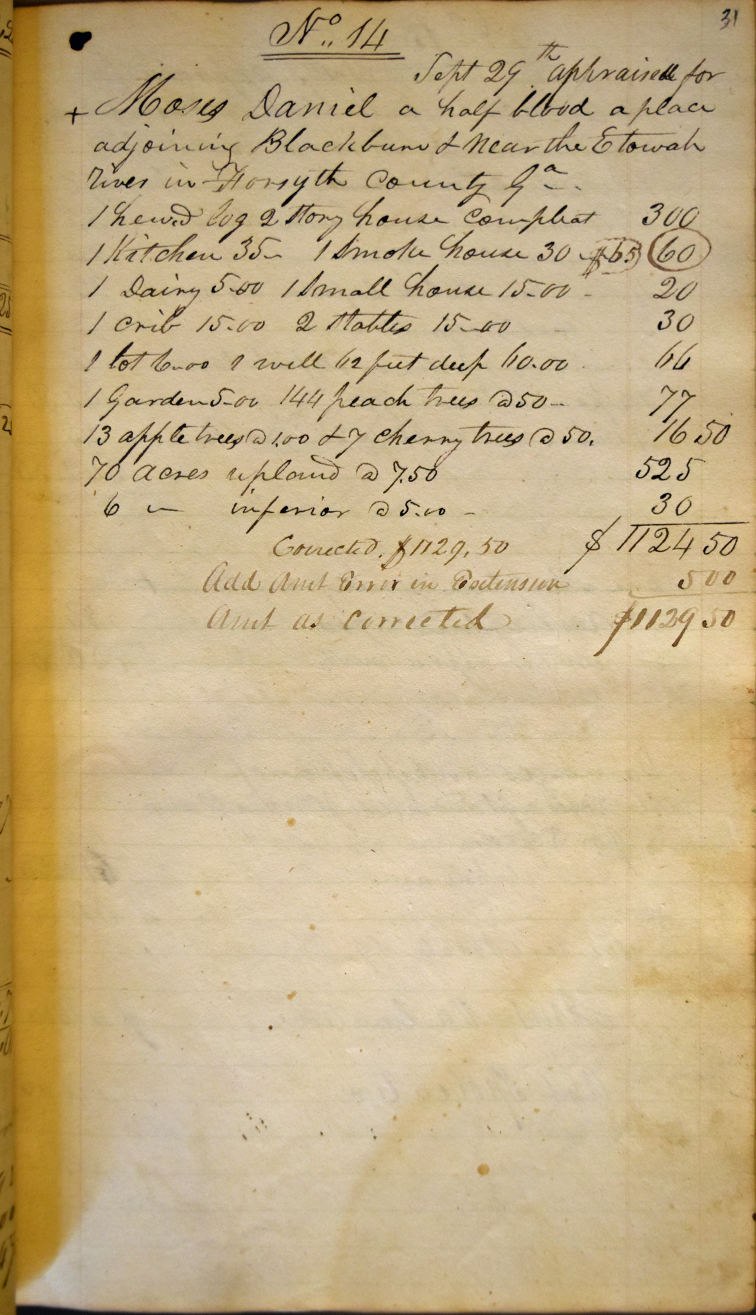 31
No. 14
Sept 29th appraised for
+ Moses Daniel a half blood a place
adjoining Blackburn & Near the Etowah
river in Forsyth County Ga.
1 hewd log 2 Story house compleat 300
1 Kitchen 35- 1 Smoke house 30 - $65 60
1 Dairy 5.00 1 Small house 15.00 - 20
1 crib 15.00 2 Stables 15.00 30
1 lot 6.00 1 well 62 feet deep 60.00 66
1 Garden 5.00 144 peach trees @ 50 - 77
13 apple trees @ 1.00 & 7 cherry trees @ 50. 16 50
70 acres upland @ 7.50 525
6 " inferior @ 5.00 - 30
Corrected. $1129.50 $ 1124 50
Add Amt Error in Extension 5 00
Amt as Corrected $1129 50